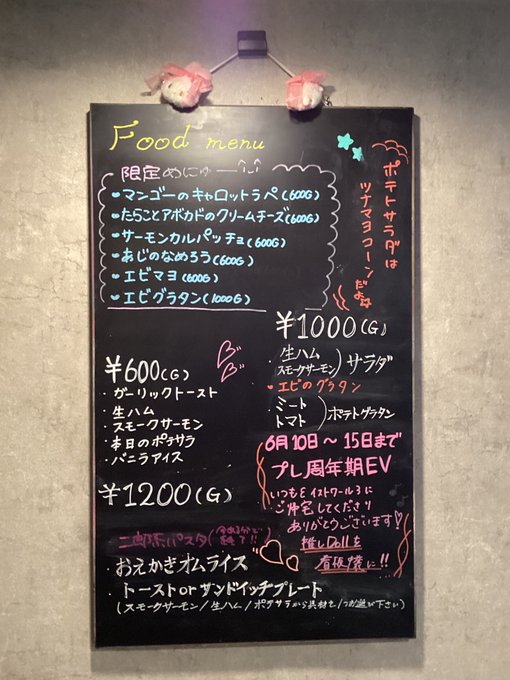 Food menu
限定めにゅー
マンゴーのキャロットラペ(600G)
たらことアボカドのクリームチーズ(600G)
サーモンカルパッチョ(600G)
あじのなめろう(600G)
エビマヨ(600G)
エビグラタン(1000G)
ポテトサラダは
ツナマヨコーン
だよ
¥600(G)
・ガーリックトースト
・生ハム
・スモークサーモン
・本日のポテサラ
・バニラアイス
¥1000(G)
・生ハム
スモークサーモン)サラダ
・エビのグラタン
・ミート
トマト)ポテトグラタン
6月10日〜15日まで
プレ周年期EV
いつもEイストワール3に
ご帰宅してくださり
ありがとうございます♡
推しDollを
看板僕に!!
¥1200(G)
二郎系パスタ
・おえかきオムライス
・トーストorサンドイッチプレート
(スモークサーモン/生ハム/ポテサラから具材を1つお選び下さい)